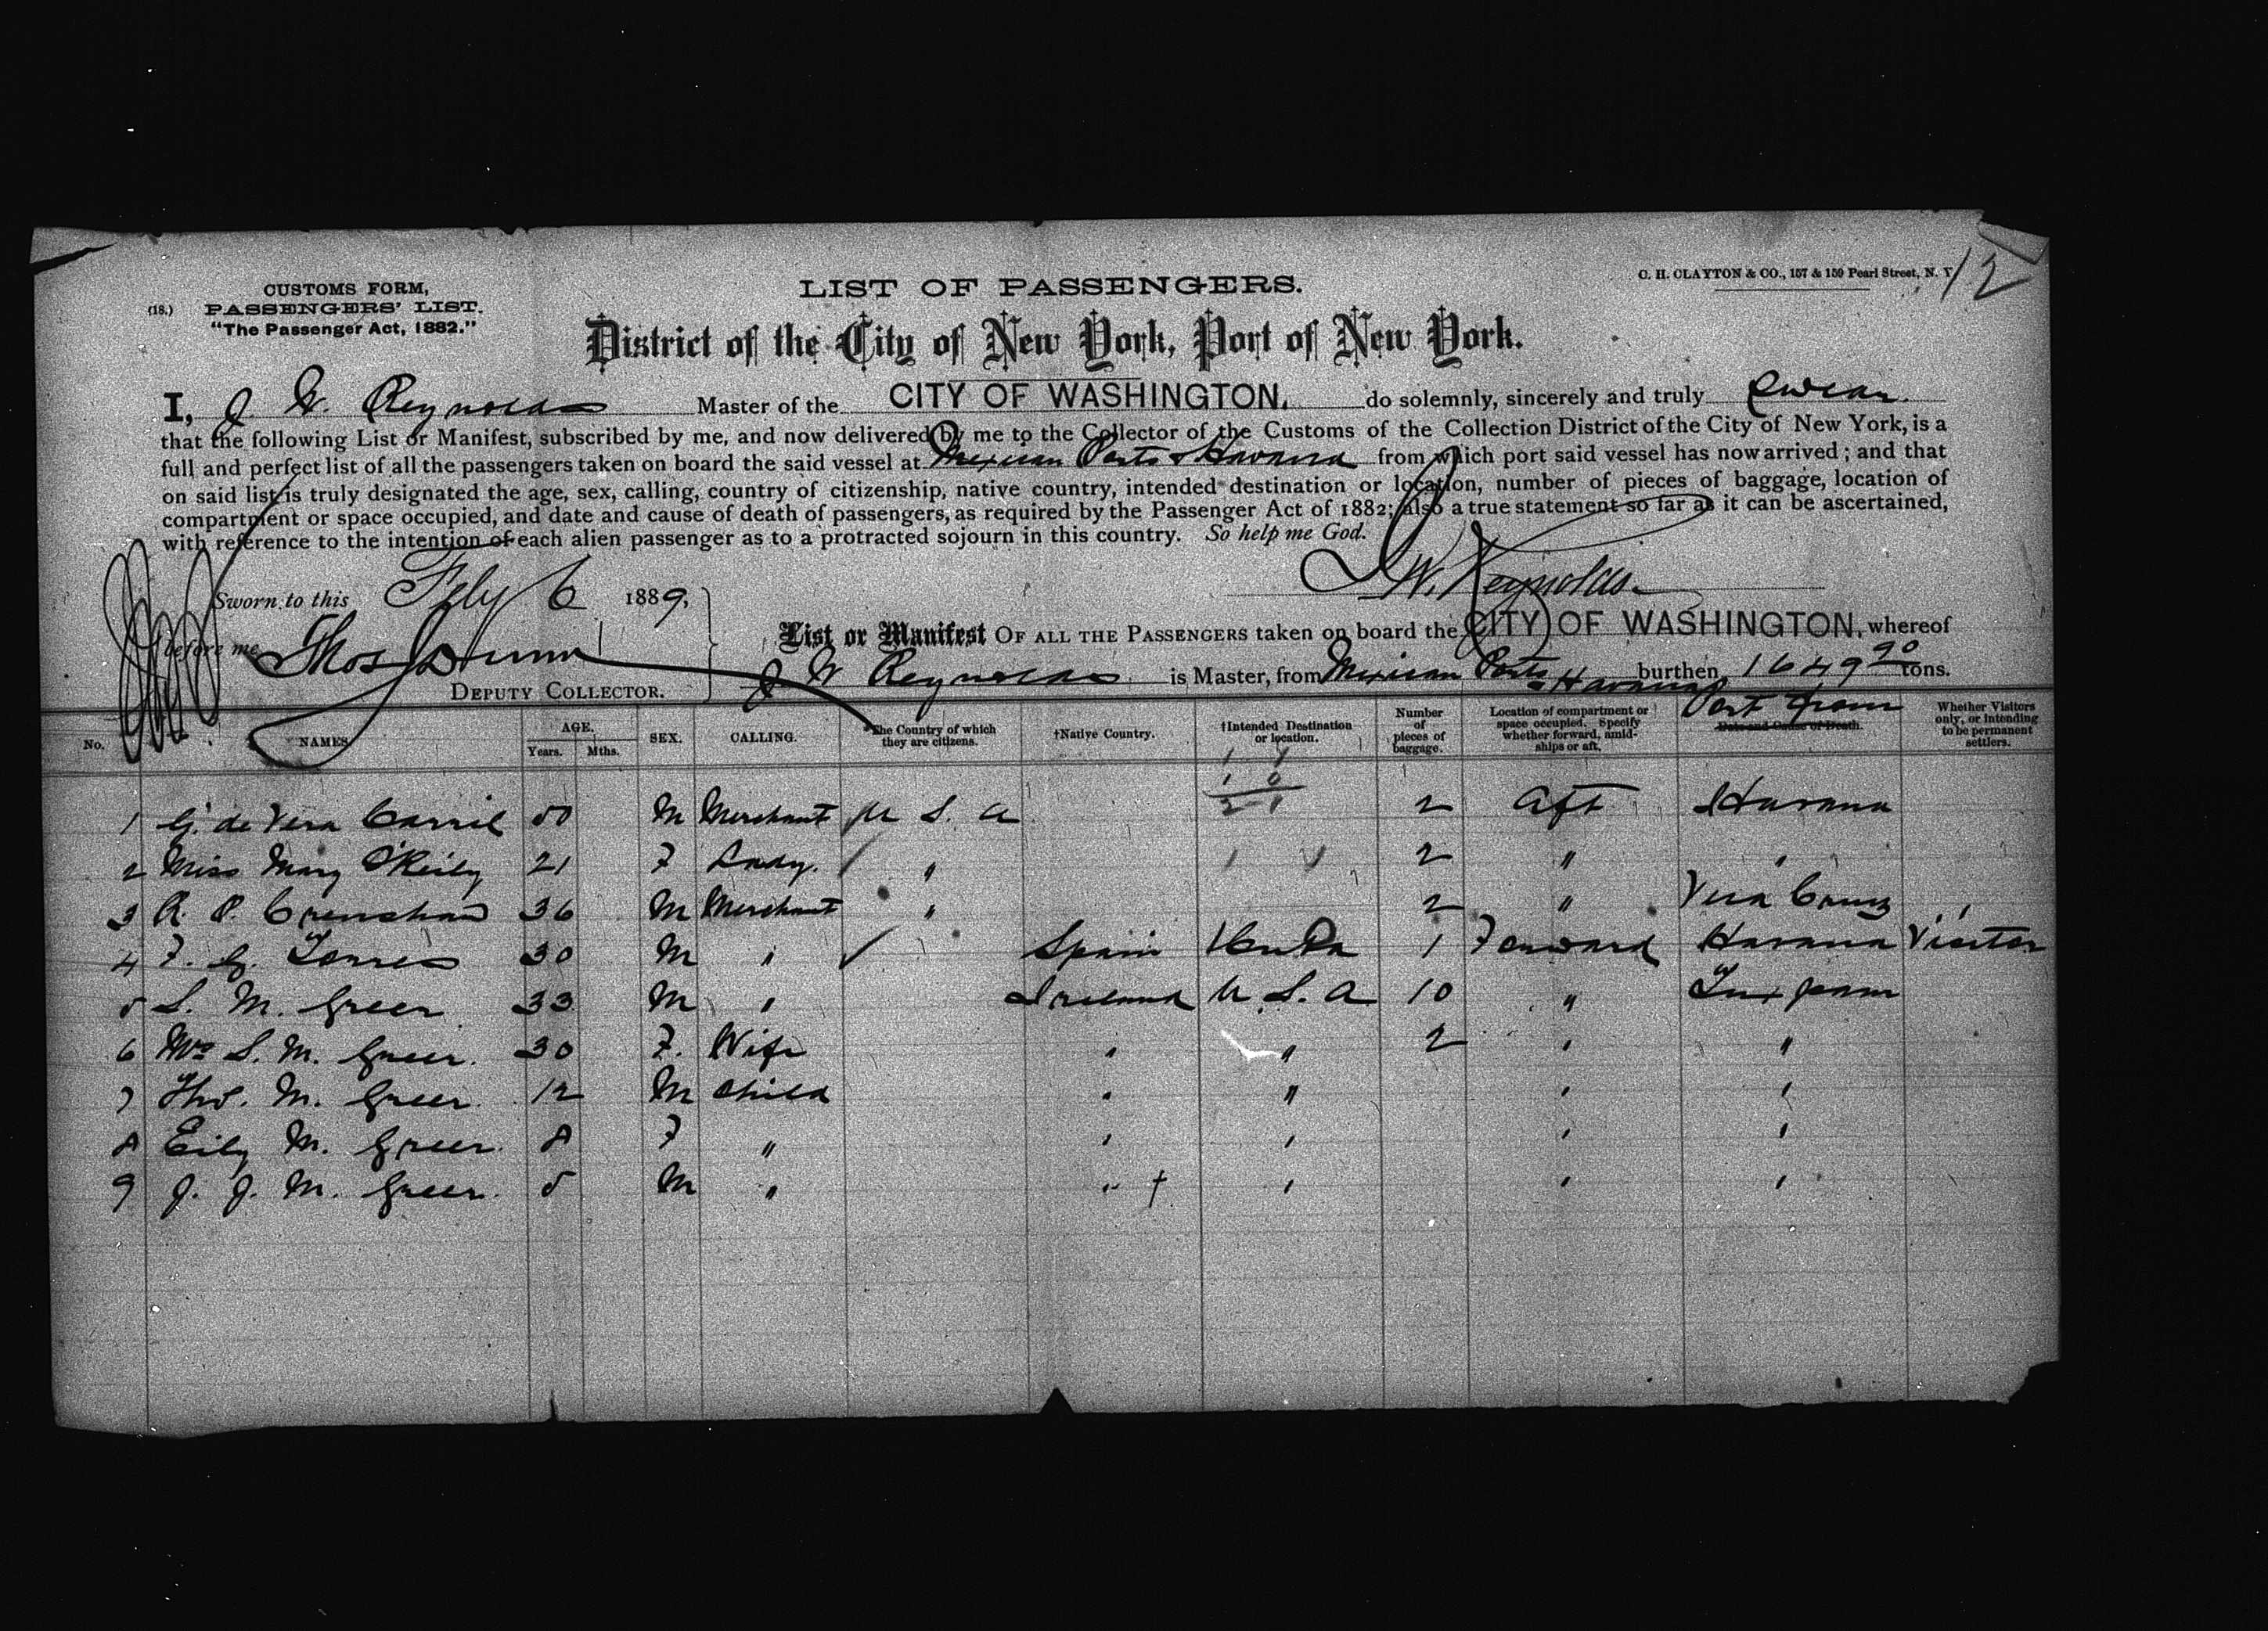 CUSTOMS FORM,
(18.) PASSENGERS' LIST.
"The Passenger Act, 1882."
LIST OF PASSENGERS.
C. H. CLAYTON & CO., 157 & 159 Pearl Street, N. Y.
12
District of the City of New York, Port of New York.
I, J. W. Reynolds Master of the CITY OF WASHINGTON, do solemnly, sincerely and truly Swear
that the following List or Manifest, subscribed by me, and now delivered by me to the Collector of the Customs of the Collection District of the City of New York, is a
full and perfect list of all the passengers taken on board the said vessel at Mexican Ports & Havana from which port said vessel has now arrived; and that
on said list is truly designated the age, sex, calling, country of citizenship, native country, intended destination or location, number of pieces of baggage, location of
compartment or space occupied, and date and cause of death of passengers, as required by the Passenger Act of 1882; also a true statement so far as it can be ascertained,
with reference to the intention of each alien passenger as to a protracted sojourn in this country. So help me God.
J W. Reynolds
Sworn to this Feby 6 1889,
before me Thos Dunn
DEPUTY COLLECTOR.
List or Manifest OF ALL THE PASSENGERS taken on board the CITY OF WASHINGTON, whereof
J W Reynolds is Master, from Mexican Ports & Havana burthen 1649 90 tons.
No. NAMES. AGE. Years. Mths. SEX. CALLING. The Country of which they are citizens. †Native Country. †Intended Destination or location. Number of pieces of baggage. Location of compartment or space occupied. Specify whether forward, amidships or aft. Port from Date and Cause of Death. Whether Visitors only, or intending to be permanent settlers.
1 G. de Vera Carril 50 M Merchant U S. A 2 Aft Havana
2 Miss Mary O'Reily 21 F Lady. " 2 " "
3 R. P. Crenshaw 36 M Merchant " 2 " Vera Cruz
4 F. G. Torres 30 M " Spain 1 Forward Havana Visitor
5 S. M. Greer 33 M " Ireland U. S. A 10 " Tuxpam
6 Mrs S. M. Greer. 30 F. Wife " " 2 " "
7 Tho. M. Greer 12 M Child " " " "
8 Eily M. Greer. 8 F " " " " "
9 J. J. M. Greer. 5 M " " † " " "